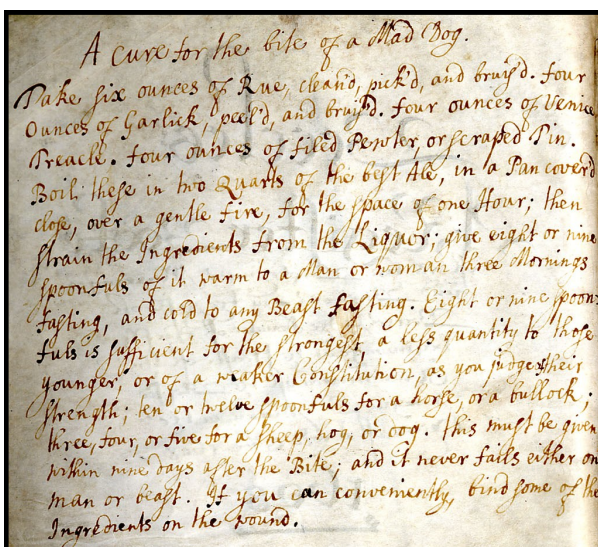 A cure for the bite of a Mad Dog.
Take six ounces of Rue, clean'd, pick'd, and bruis'd. four
Ounces of Garlick, peel'd, and bruis'd. four ounces of Venice
Treacle. four ounces of filed Pewter, or scraped Tin.
Boil these in two Quarts of the best Ale, in a Pan cover'd
close, over a gentle Fire, for the space of one Hour; then
strain the Ingredients from the Liquor; give eight or nine
spoonfuls of it warm to a Man or woman three Mornings
Fasting, and cold to any Beast fasting. Eight or nine spoon-
fuls is sufficient for the strongest, a less quantity to those
younger, or of a weaker Constitution, as you judge of their
strength; ten or twelve spoonfuls for a horse, or a bullock;
three, four, or five for a sheep, hog, or dog. This must be given
within nine days after the Bite; and it never fails either on
man or beast. If you can conveniently, bind some of the
Ingredients on the wound.